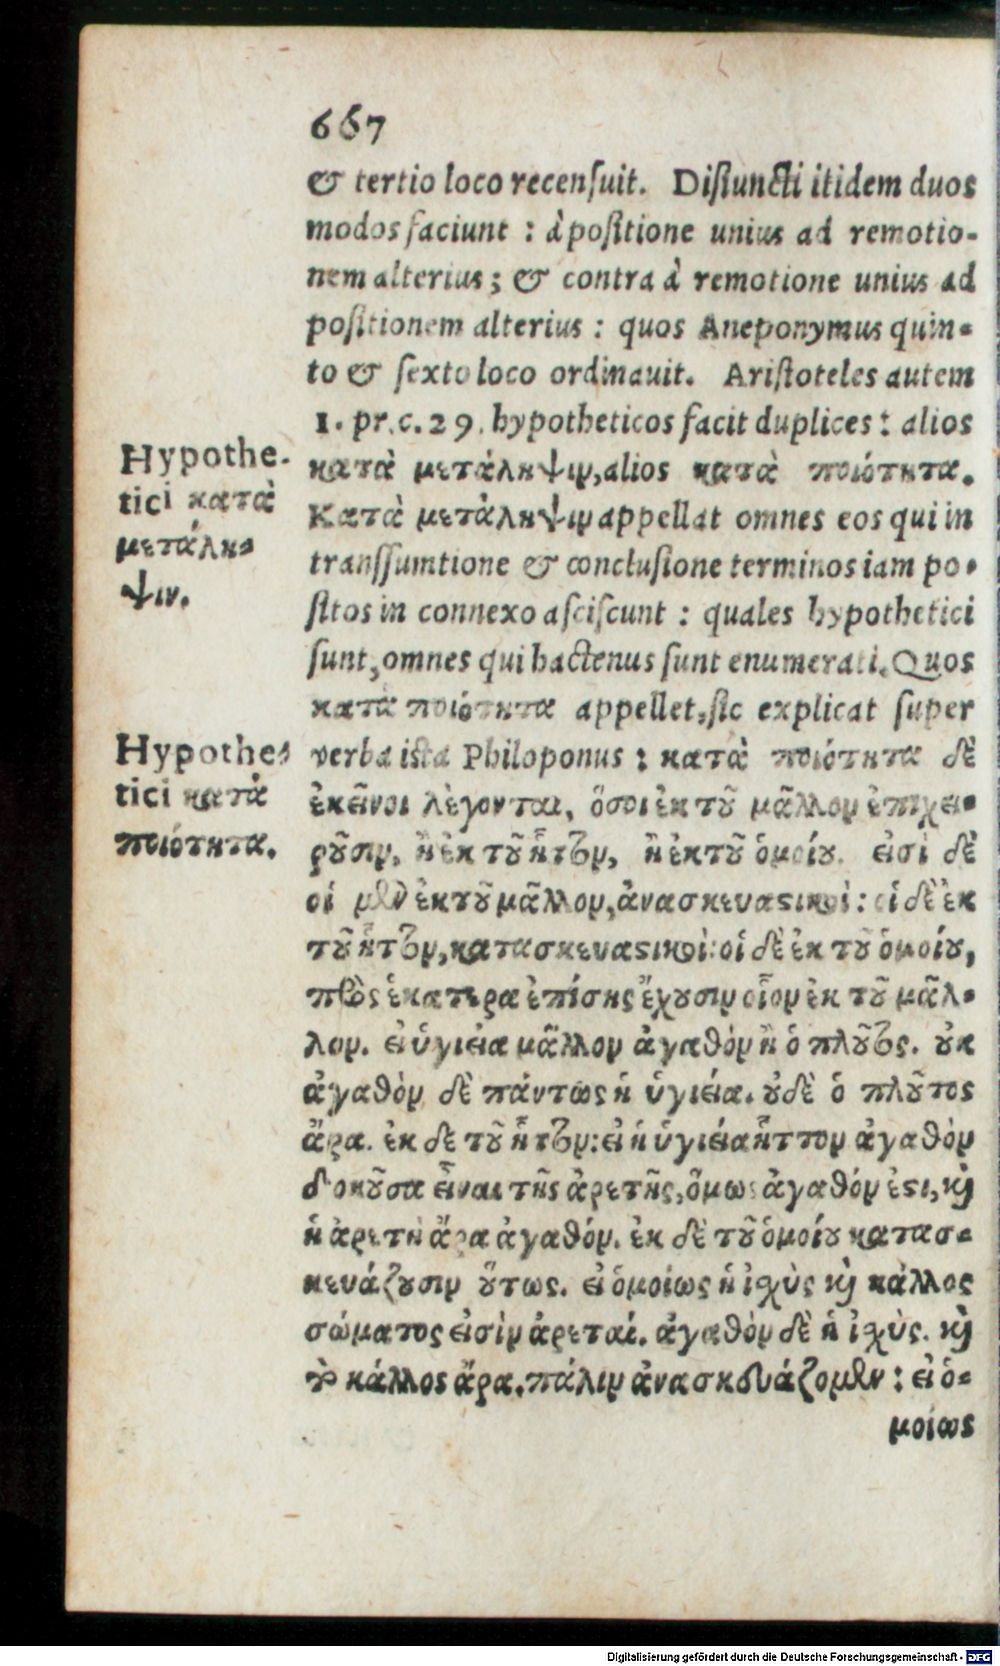 667
& tertio loco recensuit. Disiuncti itidem duos
modos faciunt : à positione unius ad remotio-
nem alterius ; & contra à remotione unius ad
positionem alterius : quos Aneponymus quin-
to & sexto loco ordinauit. Aristoteles autem
1. pr. c. 29. hypotheticos facit duplices : alios
κατὰ μετάληψιν, alios κατὰ ποιότητα.
Κατὰ μετάληψιν appellat omnes eos qui in
transsumtione & conclusione terminos iam po-
sitos in connexo asciscunt : quales hypothetici
sunt, omnes qui hactenus sunt enumerati. Quos
κατὰ ποιότητα appellet, sic explicat super
verba ista Philoponus : κατὰ ποιότητα δὲ
ἐκεῖνοι λέγονται, ὅσοι ἐκ τοῦ μᾶλλον ἐπιχει-
ροῦσιν, ἢ ἐκ τοῦ ἧττον, ἢ ἐκ τοῦ ὁμοίου. εἰσὶ δὲ
οἱ μὲν ἐκ τοῦ μᾶλλον, ἀνασκευαστικοὶ : οἱ δὲ ἐκ
τοῦ ἧττον, κατασκευαστικοὶ: οἱ δὲ ἐκ τοῦ ὁμοίου,
πρὸς ἑκατερα ἐπίσης ἔχουσιν οἷον ἐκ τοῦ μᾶλ-
λον. εἰ ὑγιεία μᾶλλον ἀγαθὸν ἢ ὁ πλοῦτος. οὐκ
ἀγαθὸν δὲ πάντως ἡ ὑγιεία. οὐδὲ ὁ πλοῦτος
ἄρα. ἐκ δὲ τοῦ ἧττον: εἰ ἡ ὑγιεία ἧττον ἀγαθὸν
δοκοῦσα εἶναι τῆς ἀρετῆς, ὅμως ἀγαθόν ἐστι, καὶ
ἡ ἀρετὴ ἄρα ἀγαθόν. ἐκ δὲ τοῦ ὁμοίου κατασ-
κευάζουσιν οὕτως. εἰ ὁμοίως ἡ ἰσχὺς καὶ κάλλος
σώματος εἰσὶν ἀρεταί. ἀγαθὸν δὲ ἡ ἰσχὺς. καὶ
τὸ κάλλος ἄρα. πάλιν ἀνασκευάζομεν : εἰ ὁ-
μοίως
Hypothe-
tici κατὰ
μετάλη-
ψιν.
Hypothe-
tici κατὰ
ποιότητα.
Digitalisierung gefördert durch die Deutsche Forschungsgemeinschaft - DFG